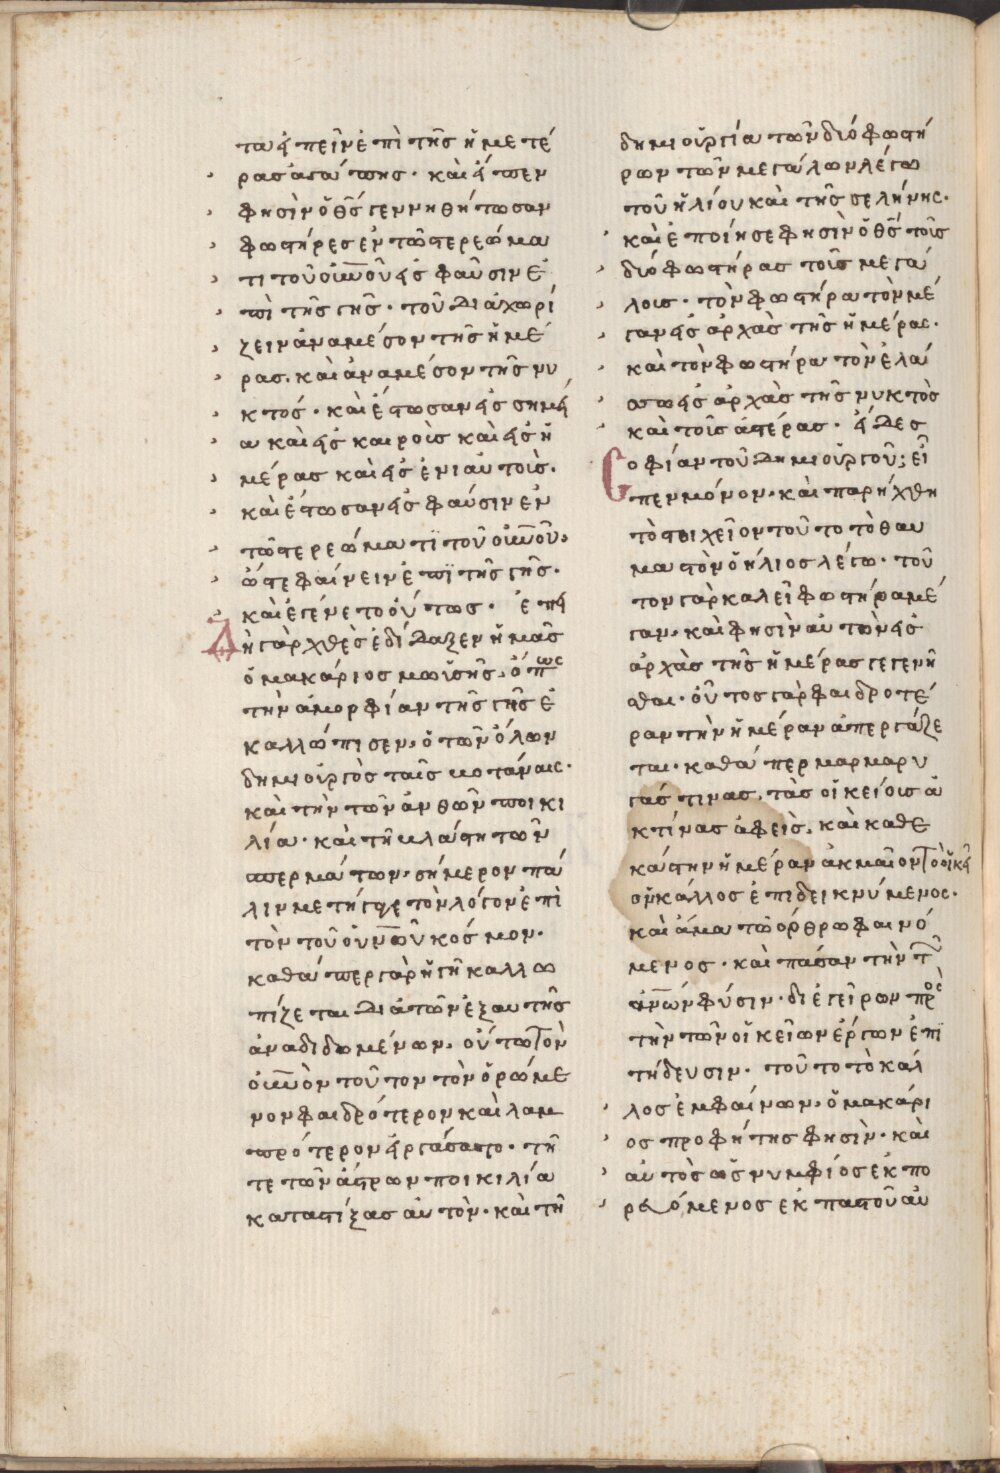 τα εἰπεῖν ἐπὶ τῆς ἡμετέ
ρας ἀγάπης· καὶ εἶπεν
φησὶν ὁ θς γεννηθήτωσαν
φωστῆρες ἐν τῶ στερεώμα
τι τοῦ οὐνοῦ εἰς φαῦσιν ἐ
πὶ τῆς γῆς· τοῦ διαχωρί
ζειν ἀναμέσον τῆς ἡμέ
ρας· καὶ ἀναμέσον τῆς νυ
κτός· καὶ ἔστωσαν εἰς σημεῖ
α καὶ εἰς καιροὺς καὶ εἰς ἡ
μέρας καὶ εἰς ἐνιαυτούς·
καὶ ἔστωσαν εἰς φαῦσιν ἐν
τῶ στερεώματϊ τοῦ οὐνοῦ·
ὥστε φαίνειν ἐπϊ τῆς γῆς·
καὶ ἐγένετο οὕτως· Ἐπει
δὴ γὰρ χθὲς ἐδίδαξεν ἡμᾶς
ὁ μακάριος μωϋσῆς· ὅπως
τὴν ἀμορφίαν τῆς γῆς ἐ
καλλώπισεν· ὁ τῶν ὅλων
δημιουργὸς ταῖς βοτάναις·
καὶ τὴν τῶν ἀνθῶν ποικι
λία· καὶ τῆ βλάστη τῶν
σπερμάτων· σήμερον πά
λιν μετήγαγε τὸν λόγον ἐπὶ
τὸν τοῦ οὐνοῦ κόσμον·
καθάπερ γὰρ ἡ γῆ καλλω
πίζεται διὰ τῶν ἐξ αυτῆς
ἀναδιδομένων· οὕτω τὸν
οὐνὸν τοῦτον τὸν ὁρώμε
νον φαιδρότερον καὶ λαμ
πρότερον εἰργάσατο· τῆ
τε τῶν ἄστρων ποικιλία
καταστίξας αὐτὸν· καὶ τῆ
δημιουργία τῶν δύο φωστή
ρων τῶν μεγάλων λέγω
τοῦ ἡλίου καὶ τῆς σελήνης·
καὶ ἐποίησε φησὶν ὁ θς τοὺς
δύο φωστῆρας τοὺς μεγά
λους· τὸν φωστῆρα τὸν μέ
γαν εἰς ἀρχὰς τῆς ἡμέρας·
καὶ τὸν φωστῆρα τὸν ἐλά
σσω εἰς ἀρχὰς τῆς νυκτὸς
καὶ τοὺς ἀστέρας· εἶδες
σοφίαν τοῦ δημιουργοῦ; εἶ
πεν μόνον· καὶ παρήχθη
τὸ στοιχεῖον τοῦτο τὸ θαυ
μαστὸν ὁ ἥλιος λέγω· τοῦ
τον γὰρ καλεῖ φωστῆρα μέ
γαν· καὶ φησὶν αὐτὸν εἰς
ἀρχὰς τῆς ἡμέρας γεγενῆ
σθαι· οὗτος γὰρ φαιδροτέ
ραν τὴν ἡμέραν ἀπεργάζε
ται· καθάπερ μαρμαρυ
γάς τινας· τὰς οἰκείους ἀ
κτίνας ἀφεὶς· καὶ καθε
κάστην ἡμέραν ἀκμαῖον τὸ οἰκεῖ
ον κάλλος ἐπιδεικνύμενος·
καὶ ἅμα τῶ ὄρθρω φαινό
μενος· καὶ πᾶσαν τὴν τῶν
ἀνων φύσιν· διεγείρων πρὸς
τὴν τῶν οἰκείων ἔργων ἐπι
τήδευσιν· τοῦτο τὸ κάλ
λος ἐμφαίνων· ὁ μακάρι
ος προφήτης φησὶν· καὶ
αὐτὸς ὡς νυμφίος ἐκπο
ρευόμενος ἐκ παστοῦ αὐ